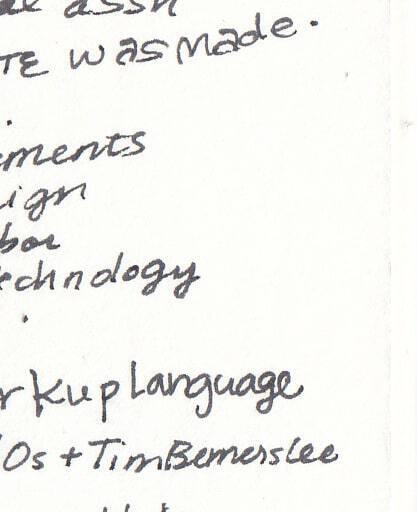 assn
TE was made.
ements
ign
bor
echnology
rkup language
Os + Tim Berners Lee